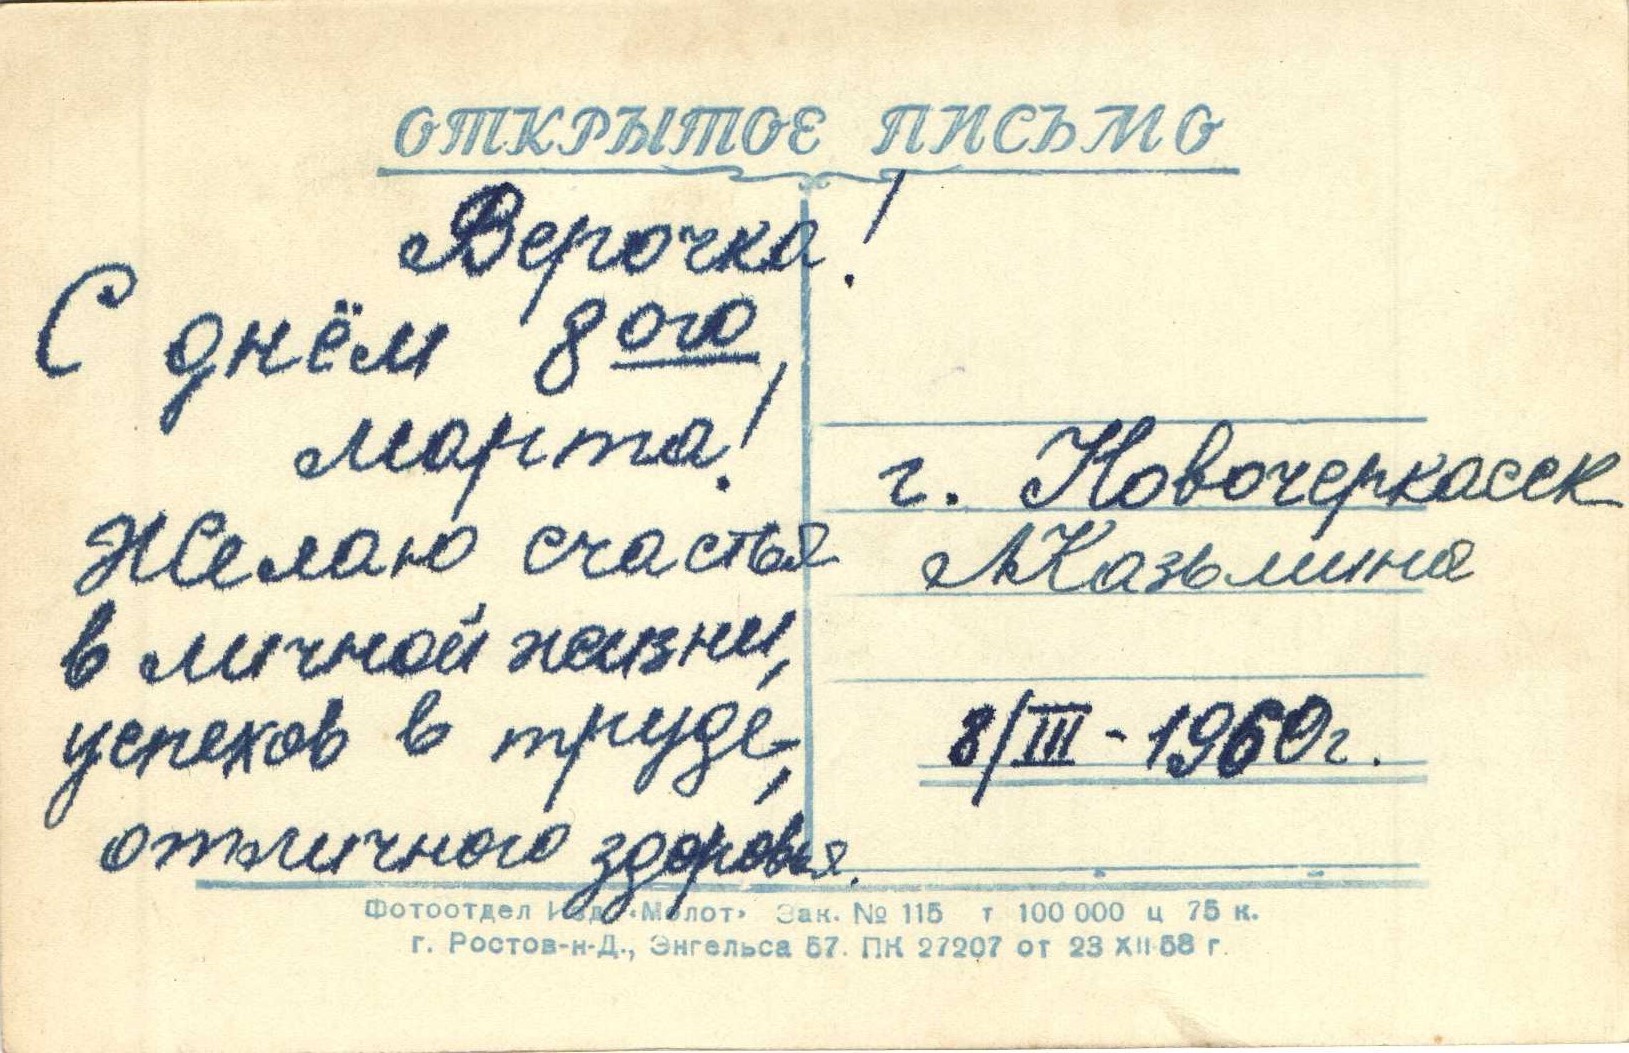 ОТКРЫТОЕ ПИСЬМО
Верочка!
С днём 8ого
марта!
Желаю счастья
в личной жизни,
успехов в труде,
отличного здоровья.
г. Новочеркасск
АКазьмина
8/III - 1960г.
Фотоотдел Изд. «Молот» Зак. № 115 т 100 000 ц 75 к.
г. Ростов-н-Д., Энгельса 57. ПК 27207 от 23 XII-58 г.